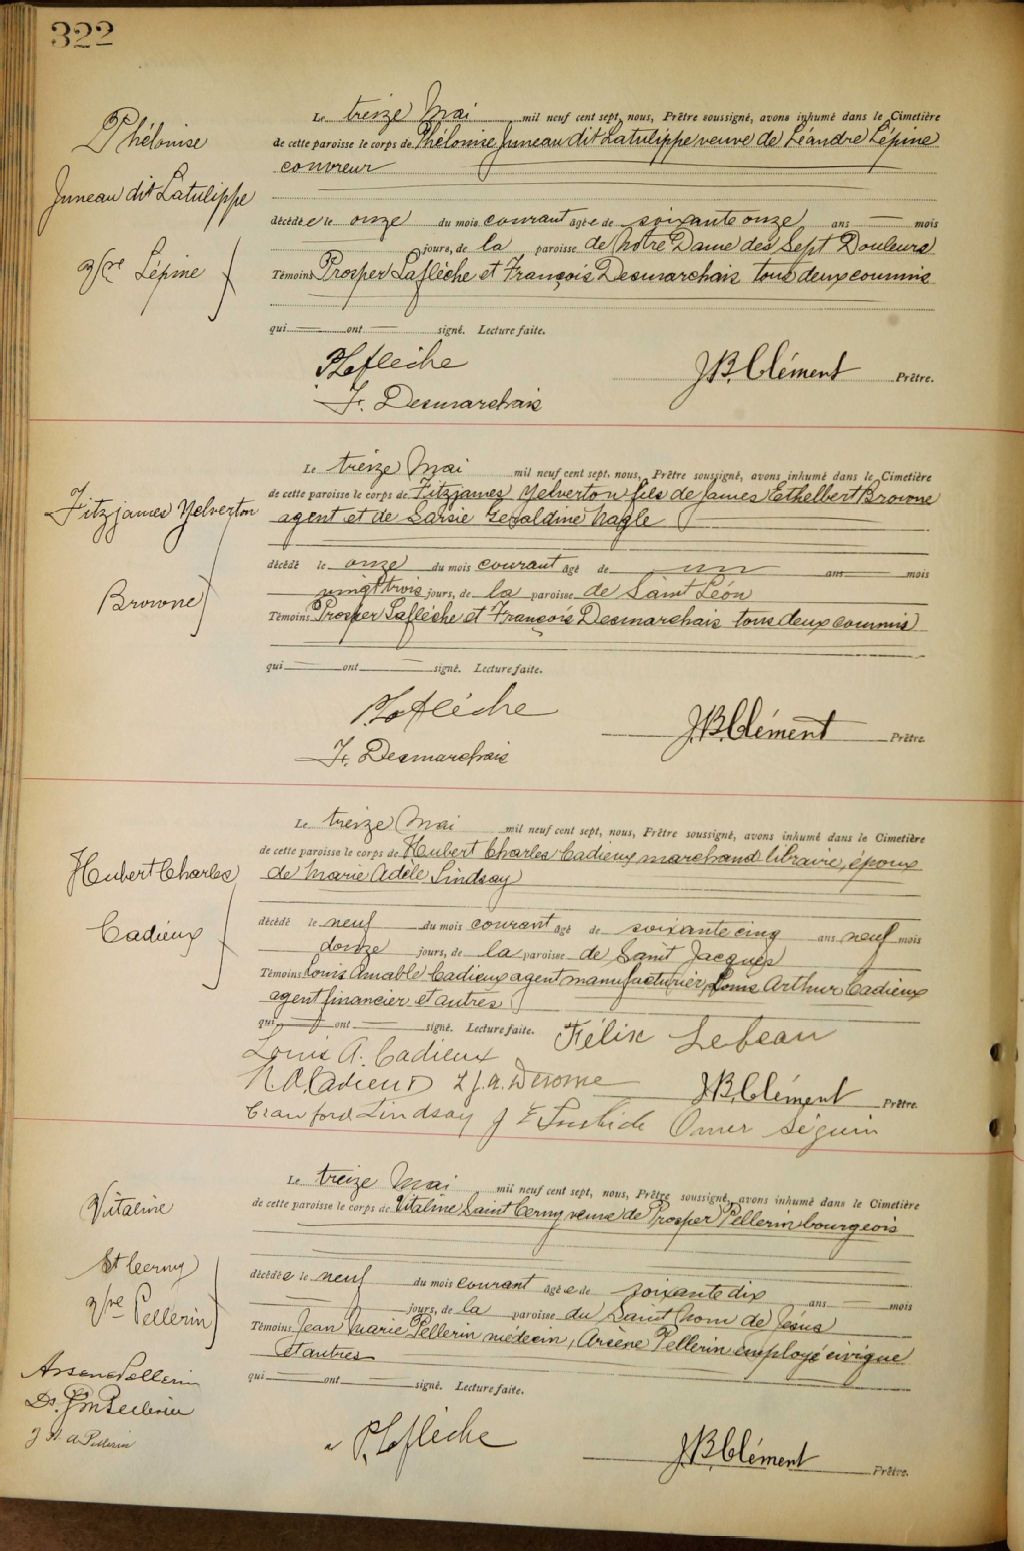 322
Phélonise
Juneau dit Latulippe
Vve Lépine
Le treize Mai mil neuf cent sept, nous, Prêtre soussigné, avons inhumé dans le Cimetière
de cette paroisse le corps de Phélonise Juneau dit Latulippe veuve de Léandre Lépine
couvreur
décédée le onze du mois courant agée de soixante onze ans mois
jours, de la paroisse de Notre Dame des Sept Douleurs
Témoins Prosper Laflèche et François Desmarchais tous deux commis
qui ont signé. Lecture faite.
P. Laflèche
J.B. Clément Prêtre.
F. Desmarchais
Fitzjames Yelverton
Browne
Le treize Mai mil neuf cent sept, nous, Prêtre soussigné, avons inhumé dans le Cimetière
de cette paroisse le corps de Fitzjames Yelverton fils de James Ethelbert Browne
agent et de Geraldine Nagle
décédé le onze du mois courant âgé de un ans mois
vingt trois jours, de la paroisse de Saint Léon
Témoins Prosper Laflèche et François Desmarchais tous deux commis
qui ont signé. Lecture faite.
P. Laflèche
J.B. Clément Prêtre.
F. Desmarchais
Hubert Charles
Cadieux
Le treize Mai mil neuf cent sept, nous, Prêtre soussigné, avons inhumé dans le Cimetière
de cette paroisse le corps de Hubert Charles Cadieux marchand libraire, époux
de Marie Adèle Lindsay
décédé le neuf du mois courant âgé de soixante cinq ans neuf mois
douze jours, de la paroisse de Saint Jacques
Témoins Louis Amable Cadieux agent manufacturier, Louis Arthur Cadieux
agent financier et autres
qui ont signé. Lecture faite. Félix Lebeau
Louis A. Cadieux
Cadieux L.J.A. Derome J.B. Clément Prêtre.
Crawford Lindsay Omer Séguin
Vitaline
St Cerny
Vve Pellerin
Le treize Mai mil neuf cent sept, nous, Prêtre soussigné, avons inhumé dans le Cimetière
de cette paroisse le corps de Vitaline Saint Cerny veuve de Prosper Pellerin bourgeois
décédée le neuf du mois courant agée de soixante dix ans mois
jours, de la paroisse du Saint Nom de Jésus
Témoins Jean Marie Pellerin médecin, Arsène Pellerin employé civique
et autres
qui ont signé. Lecture faite.
Arsene Pellerin
Dr. J M Pellerin
Pellerin
P. Laflèche
J.B. Clément Prêtre.